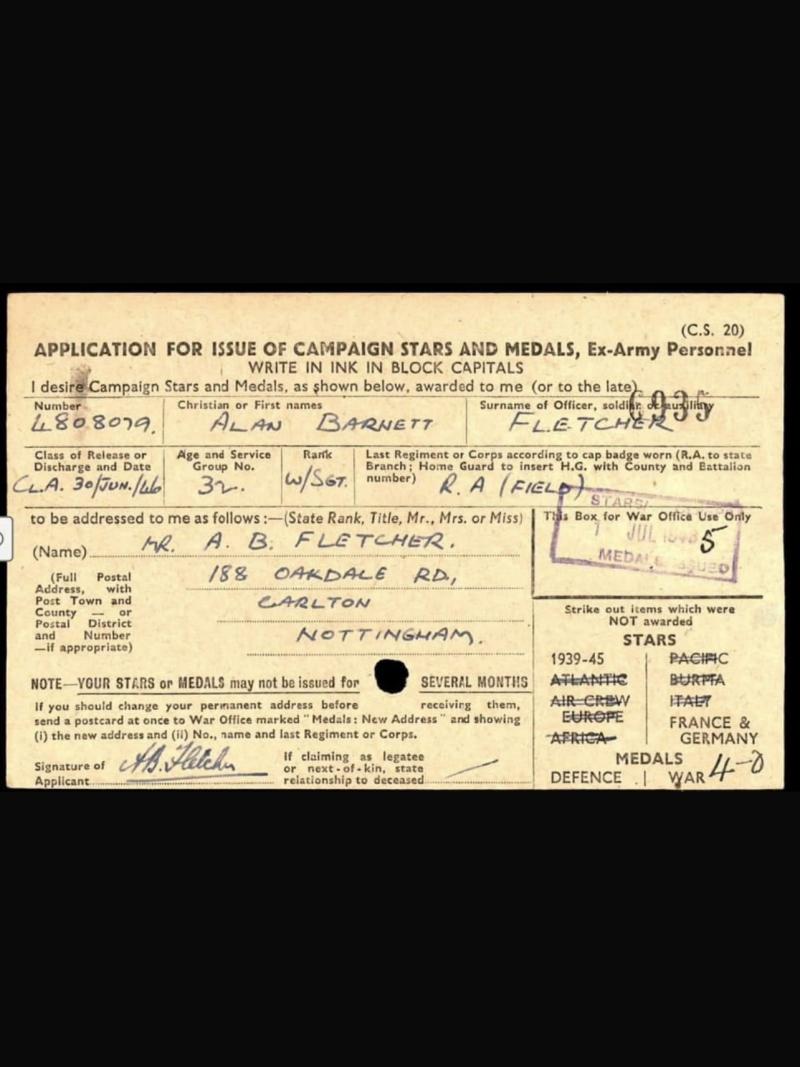 (C.S. 20)
APPLICATION FOR ISSUE OF CAMPAIGN STARS AND MEDALS, Ex-Army Personnel
WRITE IN INK IN BLOCK CAPITALS
I desire Campaign Stars and Medals, as shown below, awarded to me (or to the late)
6935
Number
4808079.
Christian or First names
ALAN BARNETT
Surname of Officer, soldier or auxiliary
FLETCHER
Class of Release or
Discharge and Date
CL.A. 30/JUN./46
Age and Service
Group No.
32.
Rank
W/SGT.
Last Regiment or Corps according to cap badge worn (R.A. to state
Branch; Home Guard to insert H.G. with County and Battalion
number)
R. A (FIELD)
to be addressed to me as follows:—(State Rank, Title, Mr., Mrs. or Miss)
(Name) MR. A. B. FLETCHER.
(Full Postal
Address, with
Post Town and
County — or
Postal District
and Number
—if appropriate)
188 OAKDALE RD,
CARLTON
NOTTINGHAM.
This Box for War Office Use Only
STARS/
JUL
5
MEDALS ISSUED
Strike out items which were
NOT awarded
STARS
1939-45
ATLANTIC
AIR CREW
EUROPE
AFRICA
PACIFIC
BURMA
ITALY
FRANCE &
GERMANY
MEDALS
DEFENCE | WAR
NOTE—YOUR STARS or MEDALS may not be issued for SEVERAL MONTHS
If you should change your permanent address before receiving them,
send a postcard at once to War Office marked "Medals: New Address" and showing
(i) the new address and (ii) No., name and last Regiment or Corps.
Signature of
Applicant
A.B. Fletcher
If claiming as legatee
or next-of-kin, state
relationship to deceased